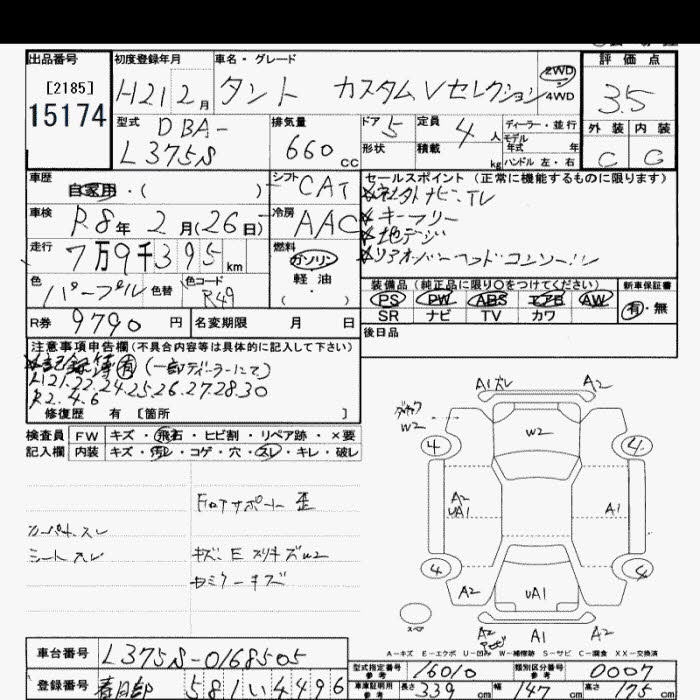 出品番号
[2185]
15174
初度登録年月
H21 2月
車名・グレード
タント カスタムVセレクション
2WD
4WD
評価点
3.5
外装 内装
C C
型式
DBA-
L375S
排気量
660 cc
ドア 5
形状
定員 4人
積載 kg
ディーラー・並行
モデル年式 年
ハンドル 左・右
車歴
自家用・( )
シフト CAT
車検
R8年 2月(26日)
冷房 AAC
走行
7万9千395 km
燃料
ガソリン
軽油
( )
色
パープル
色替
色コード
R49
R券 9790 円
名変期限 月 日
セールスポイント (正常に機能するものに限ります)
社外ナビ・TV
キーフリー
地デジ
リアオーバーヘッドコンソール
装備品 (純正品に限り○をつけてください)
新車保証書
PS PW ABS エアB AW
SR ナビ TV カワ
有・無
後日品
注意事項申告欄 (不具合内容等は具体的に記入して下さい)
記録簿有 (一部ディーラーにて)
H21.22.24.25.26.27.28.30
R2.4.6
修復歴 有 [箇所 ]
検査員
記入欄
FW キズ・飛石・ヒビ割・リペア跡・×要
内装 キズ・汚レ・コゲ・穴・スレ・キレ・破レ
サポート 歪
スレ
シート スレ
A1 スレ
A2
W2
W2
4
4
A2
UA1
A1
4
4
A2
UA1
A2
A2
A1
A2
スペア
A-キズ E-エクボ U-凹み W-補修跡 S-サビ C-腐食 XX-交換済
車台番号 L375S-0168505
登録番号 春日部 581 い 4496
型式指定番号
参考
16010
類別区分番号
参考
0007
車庫証明用
参考
長さ 339 cm
幅 147 cm
高さ 175 cm